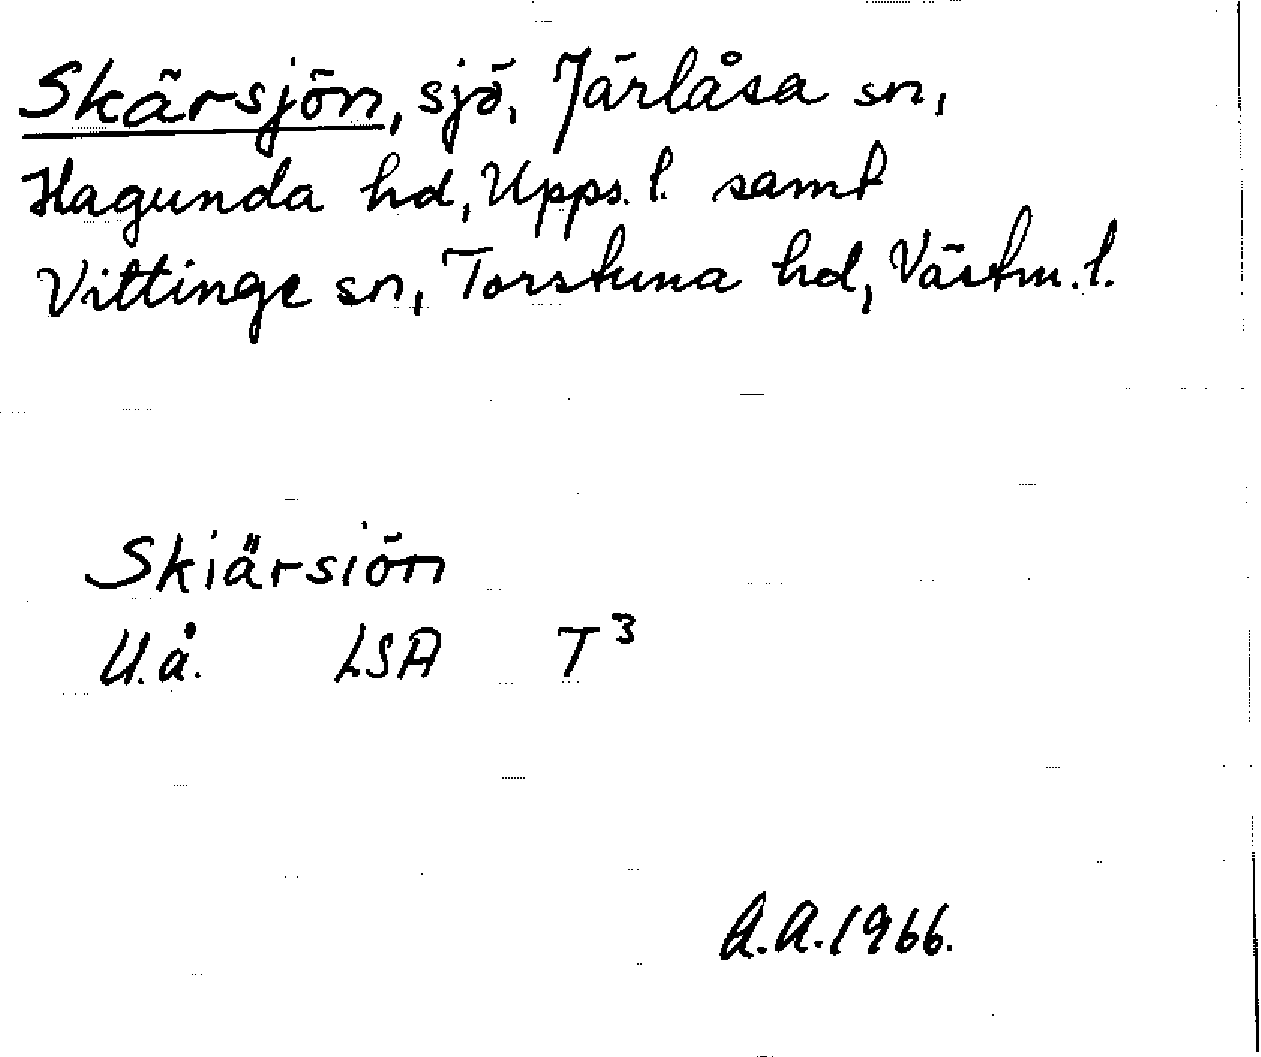 Skärsjön, sjö, Järlåsa sn,
Hagunda hd, Upps. l. samt
Vittinge sn, Torstuna hd, Västm. l.
Skiärsiön
U.å. LSA T³
A.A. 1966.